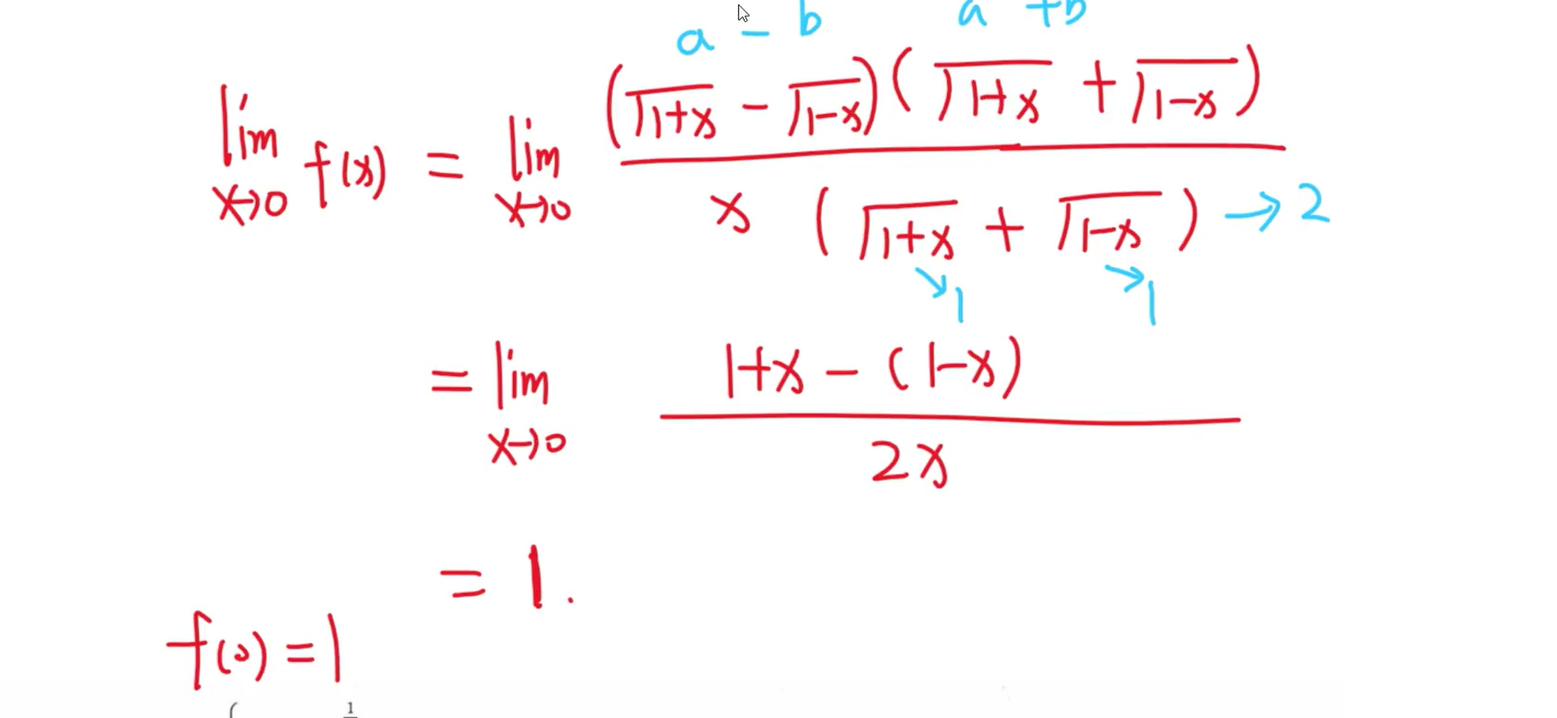 a - b a + b
lim x→0 f(x) = lim x→0 (√1+x - √1-x)(√1+x + √1-x) / x (√1+x + √1-x) → 2
↘1 ↘1
= lim x→0 1+x - (1-x) / 2x
= 1.
f(0) = 1
1